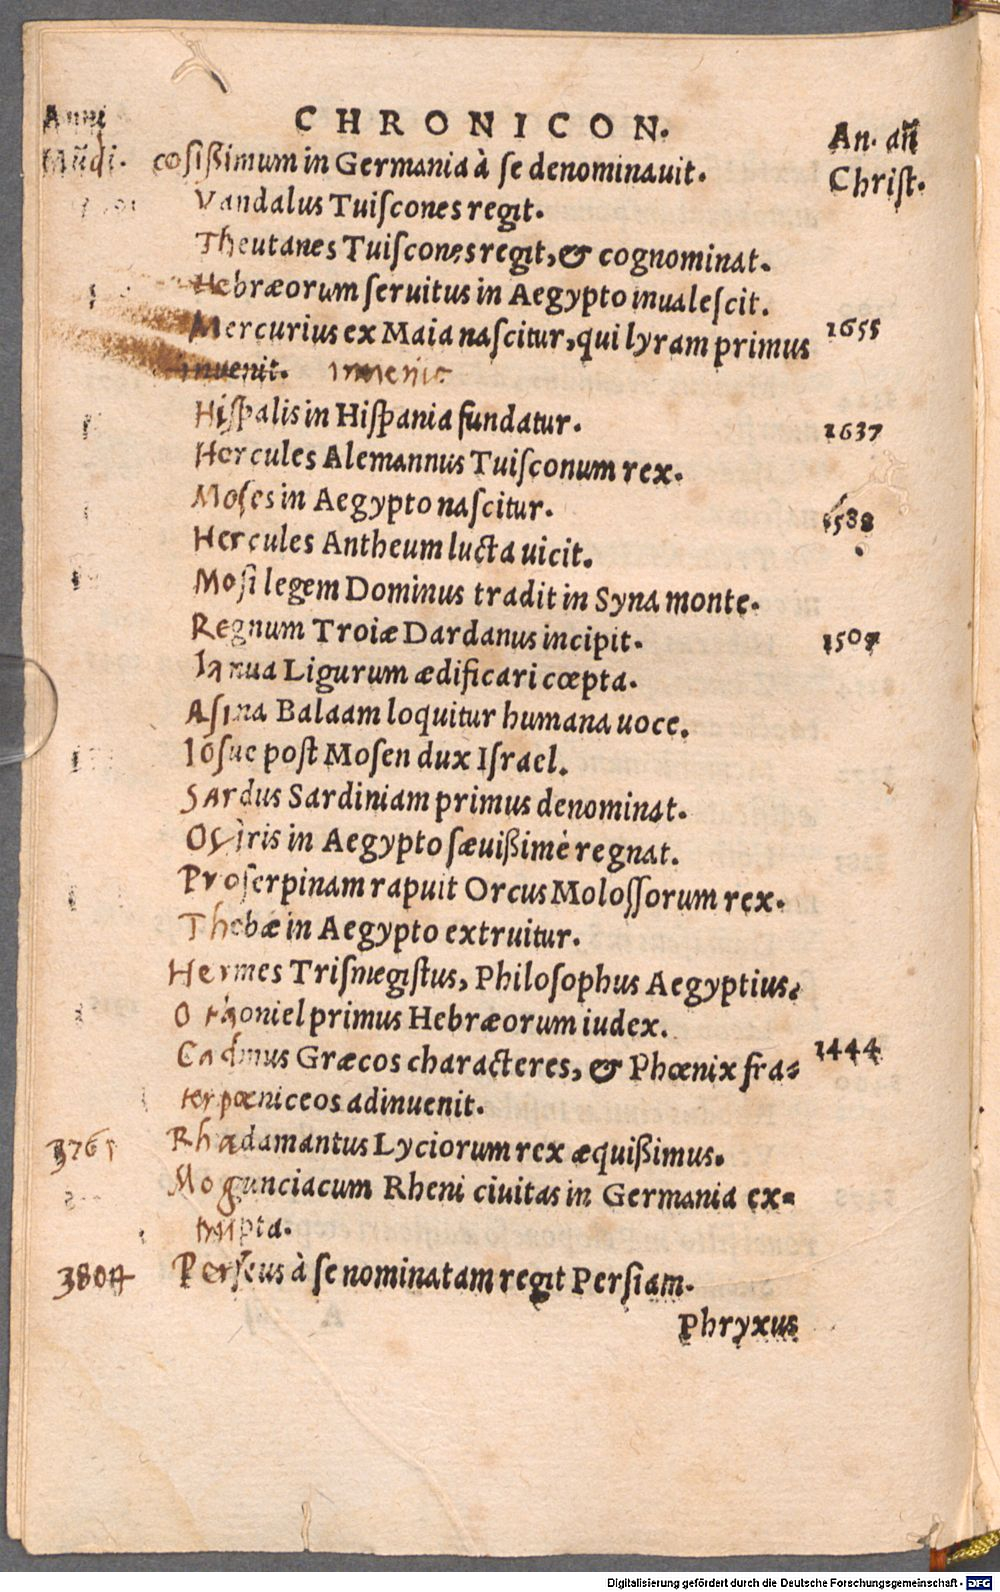 CHRONICON.
Anni
Mũdi.
An. añ
Christ.
cosißimum in Germania à se denominauit.
Vandalus Tuiscones regit.
Theutanes Tuiscones regit, & cognominat.
Hebræorum seruitus in Aegypto inualescit.
Mercurius ex Maia nascitur, qui lyram primus 1655
inuenit. inuenit
Hispalis in Hispania fundatur. 1637
Hercules Alemannus Tuisconum rex.
Moses in Aegypto nascitur. 1588
Hercules Antheum lucta uicit.
Mosi legem Dominus tradit in Syna monte.
Regnum Troiæ Dardanus incipit. 1507
Ianua Ligurum ædificari cœpta.
Asina Balaam loquitur humana uoce.
Iosue post Mosen dux Israel.
Sardus Sardiniam primus denominat.
Osiris in Aegypto sæuißimè regnat.
Proserpinam rapuit Orcus Molossorum rex.
Thebæ in Aegypto extruitur.
Hermes Trismegistus, Philosophus Aegyptius.
Othoniel primus Hebræorum iudex.
Cadmus Græcos characteres, & Phœnix fra= 1444
ter pœniceos adinuenit.
3765 Rhadamantus Lyciorum rex æquißimus.
Mogunciacum Rheni ciuitas in Germania ex=
pta.
3804 Perseus à se nominatam regit Persiam.
Phryxus
Digitalisierung gefördert durch die Deutsche Forschungsgemeinschaft - DFG